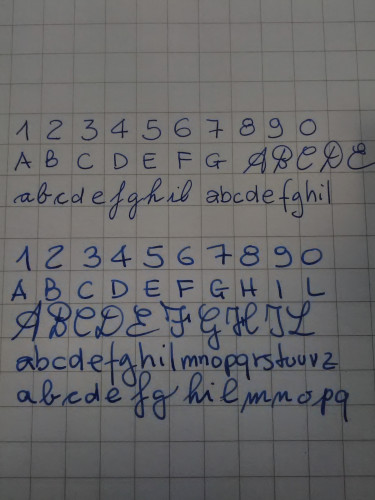 1 2 3 4 5 6 7 8 9 0
A B C D E F G A B C D E
abcdefghil abcdefghil
1 2 3 4 5 6 7 8 9 0
A B C D E F G H I L
A B C D E F G H I L
abcdefghilmnopqrstuvz
abcdefghilmnopq